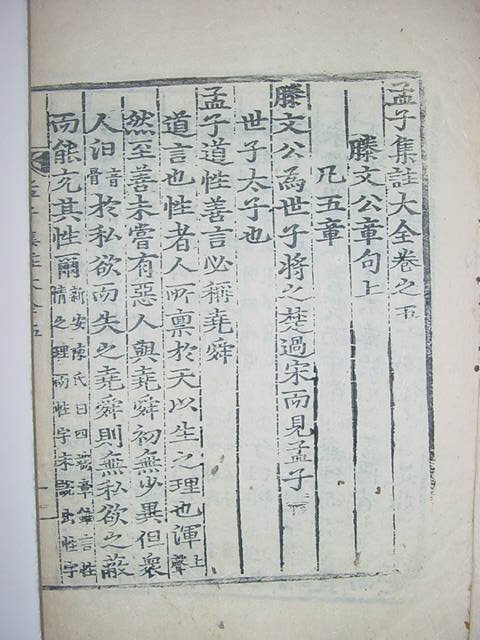 孟子集註大全卷之五
滕文公章句上
凡五章
滕文公爲世子將之楚過宋而見孟子
世子太子也
孟子道性善言必稱堯舜
道言也性者人所禀於天以生之理也渾上聲
然至善未嘗有惡人與堯舜初無少異但衆
人汨音骨於私欲而失之堯舜則無私欲之蔽
而能充其性爾新安陳氏曰四端章言性情之理而性字未說出性字
孟子集註大全五